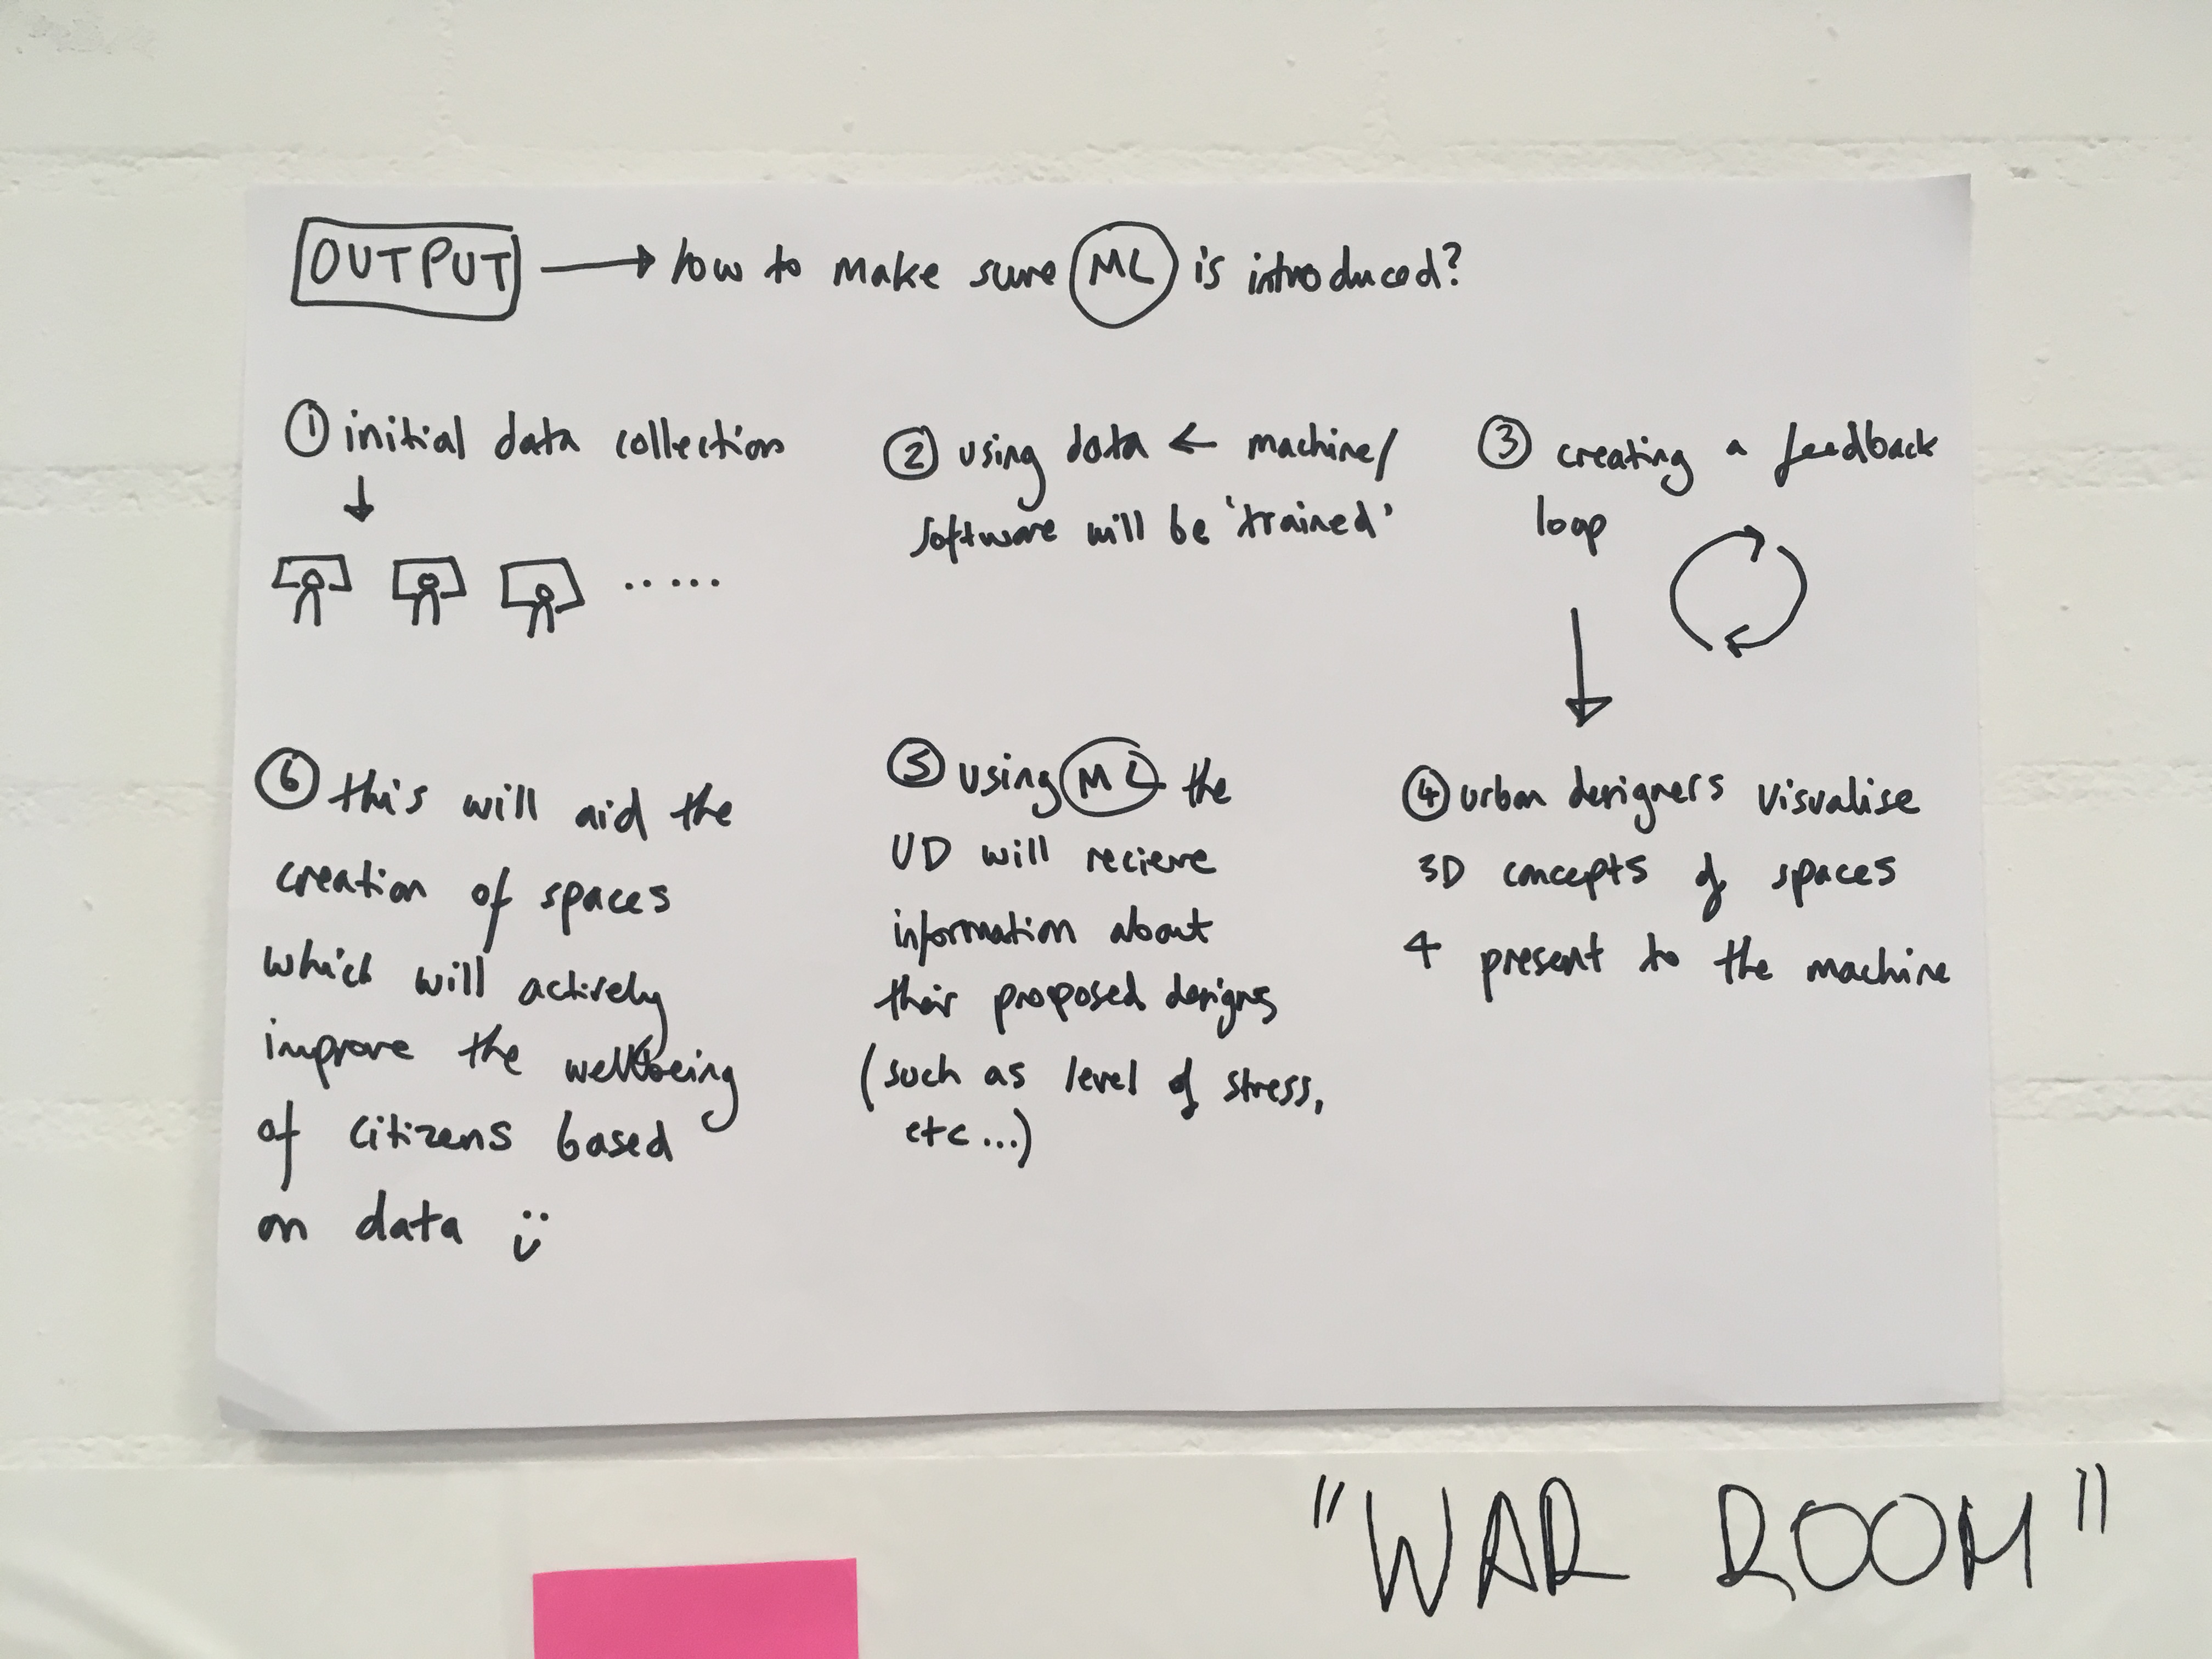 OUTPUT → how to make sure ML is introduced?
① initial data collection
② using data ← machine/
software will be 'trained'
③ creating a feedback
loop
④ urban designers visualise
3D concepts of spaces
+ present to the machine
⑤ using ML the
UD will recieve
information about
their proposed designs
(such as level of stress,
etc...)
⑥ this will aid the
creation of spaces
which will actively
improve the wellbeing
of citizens based
on data
"WAR ROOM"